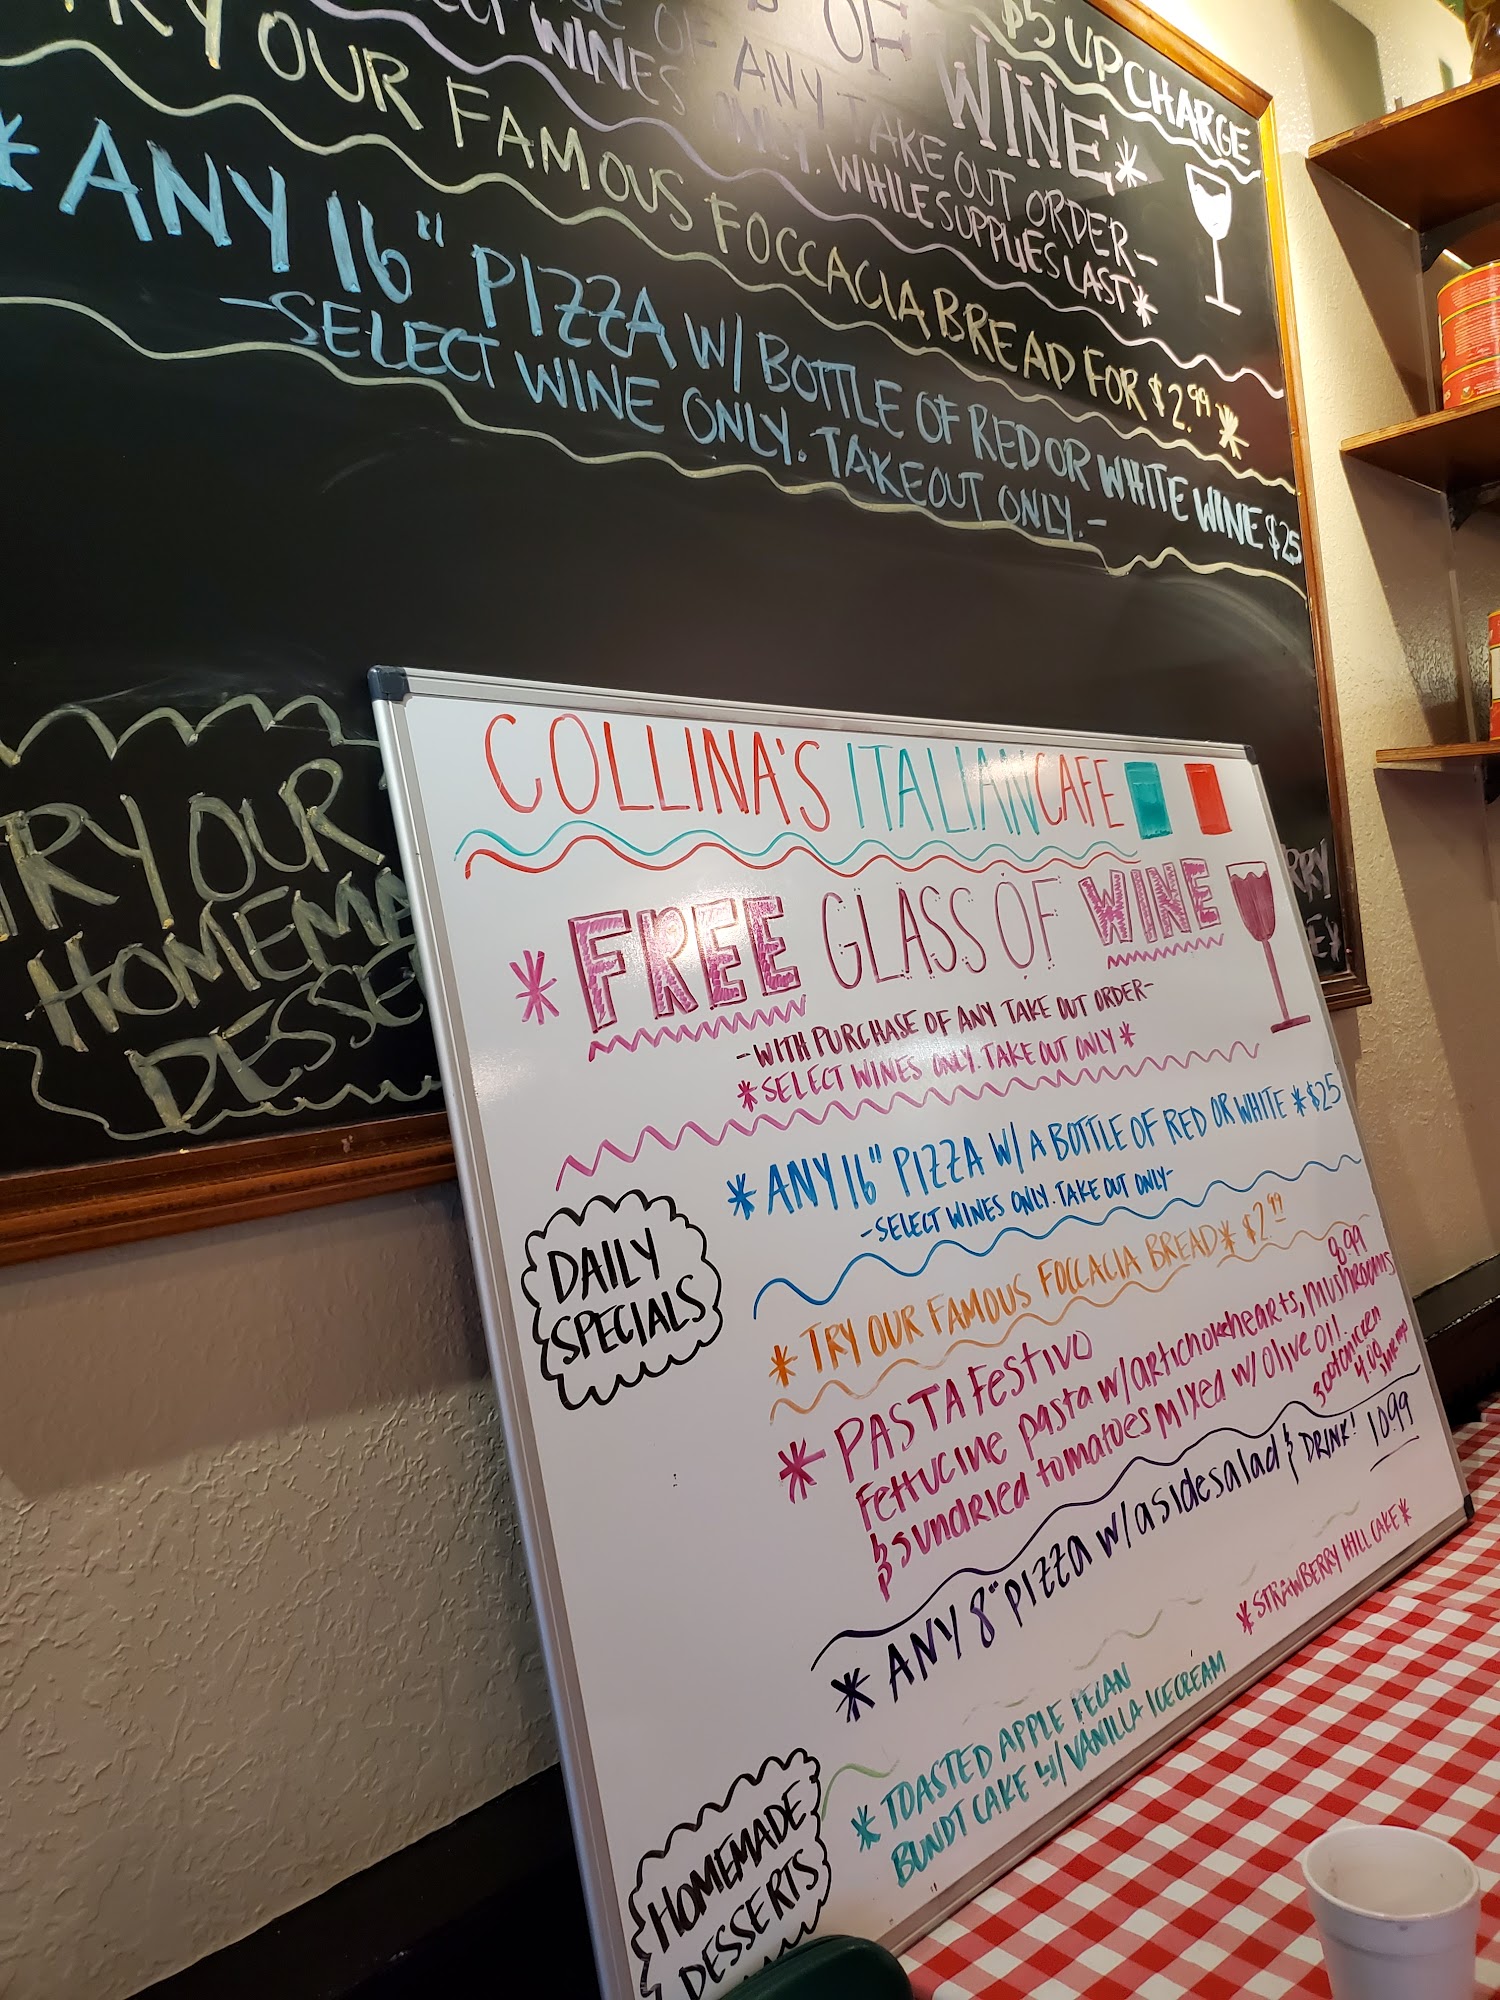 $5 UPCHARGE
OF WINE*
OF ANY TAKE OUT ORDER-
WINES ONLY. WHILE SUPPLIES LAST*
TRY OUR FAMOUS FOCCACIA BREAD FOR $2.99*
*ANY 16" PIZZA W/ BOTTLE OF RED OR WHITE WINE $25
-SELECT WINE ONLY. TAKEOUT ONLY.-
TRY OUR
HOMEMA
DESSE
COLLINA'S ITALIAN CAFE
*FREE GLASS OF WINE
-WITH PURCHASE OF ANY TAKE OUT ORDER-
*SELECT WINES ONLY. TAKE OUT ONLY*
*ANY 16" PIZZA W/ A BOTTLE OF RED OR WHITE *$25
-SELECT WINES ONLY. TAKE OUT ONLY-
DAILY
SPECIALS
*TRY OUR FAMOUS FOCCACIA BREAD* $2.99
*PASTA FESTIVO 8.99
Fettucine pasta w/ artichoke hearts, mushrooms
& sundried tomatoes mixed w/ olive oil.
*ANY 8" PIZZA w/ a side salad & DRINK! 10.99
HOMEMADE
DESSERTS
*TOASTED APPLE PECAN
BUNDT CAKE W/ VANILLA ICE CREAM
*STRAWBERRY HILL CAKE*